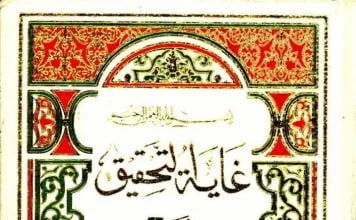 بسم الله الرحمن الرحيم
غاية التحقيق